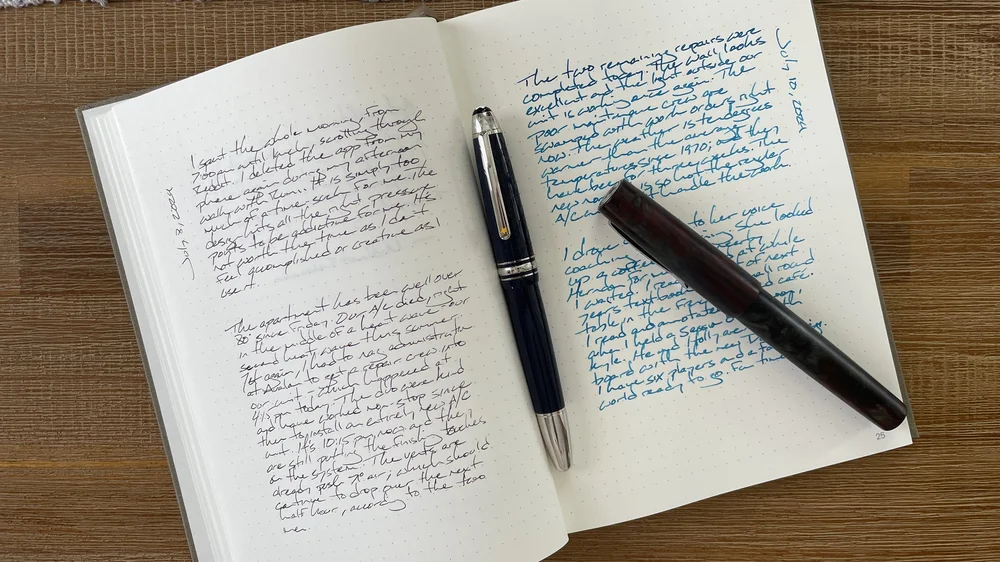 July 8, 2024
I spent the whole morning, from
7:00 until lunch, scrolling through
I deleted the app from my
phone again during my afternoon
walk with It is simply too
much of a time suck for me. The
design hits all the right pressure
points to be addictive for me. It's
not worth the time as I don't
feel accomplished or creative as I
use it.
The apartment has been well over
80° since Friday. Our A/C died, right
in the middle of a heat wave - our
second heat wave this summer.
I had to nag administration
at Avalon to get a repair crew into
our unit, which happened at
4:15 pm today. The duo were kind
and have worked non-stop since
then to install an entirely new A/C
unit. It's 10:15 pm now and they
are still putting the finishing touches
on the system. The vents are
already air, which should
continue to drop over the next
half hour, according to the two
men.
July 10, 2024
The two remaining repairs were
completed today. The wall looks
excellent and the light outside our
unit is working once again. The
poor maintenance crew are
swamped with work orders right
now. The weather is ten degrees
warmer than the average
temperatures since 1970, and then
for three weeks. The
is so not the
A/C handle the
I drove to her voice
coaching She looked
up a
Herndon for while
I waited. I of next
year's text round
table in the café.
I read and annotated
when I held a Session
Kyle. He and Holly are
board with the new D
I have six players and a
world ready to go. Fun
25